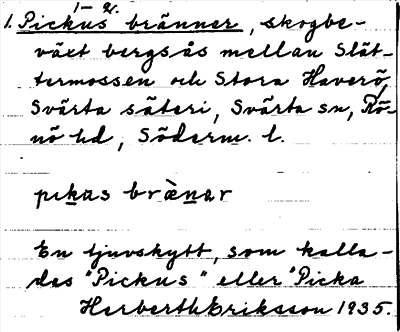 1-2.
1. Pickus bränner, skogbe-
växt bergsås mellan Slät-
termossen och Stora Haverö,
Svärta säteri, Svärta sn, Rö-
nö hd, Söderm. l.
pikas brä̀nar
En tjuvskytt, som kalla-
des "Pickus" eller "Picka
Herbert Eriksson 1935.